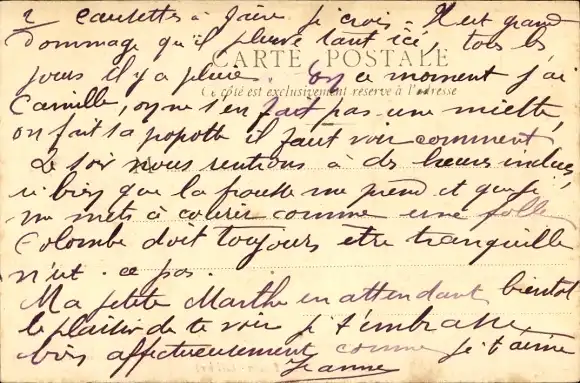 2 causettes à faire je crois = Il est grand
dommage qu'il pleuve tant ici, tous les
CARTE POSTALE
jours il y a pluie. En ce moment j'ai
Ce côté est exclusivement réservé à l'adresse
Camille, on ne s'en fait pas une miette,
on fait sa popotte il faut voir comment
Le soir nous rentrons à des heures indues,
si bien que la frousse me prend et que je
me mets à courir comme une folle
Colombe doit toujours etre tranquille
n'est-ce pas.
Ma petite Marthe en attendant bientot
le plaisir de te voir je t'embrasse
bien affectueusement comme je t'aime
Jeanne